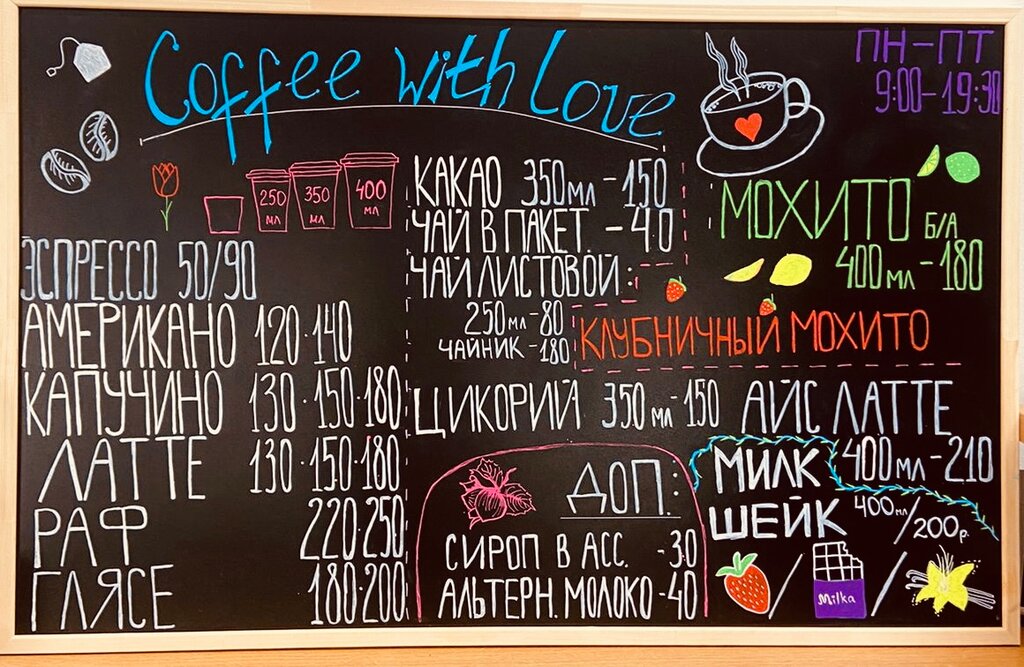 Coffee with Love
ПН-ПТ
9:00-19:30
250 мл
350 мл
400 мл
ЭСПРЕССО 50/90
АМЕРИКАНО 120·140
КАПУЧИНО 130·150·180
ЛАТТЕ 130·150·180
РАФ 220·250
ГЛЯСЕ 180·200
КАКАО 350мл-150
ЧАЙ В ПАКЕТ. - 40
ЧАЙ ЛИСТОВОЙ:
250мл-80
ЧАЙНИК-180
МОХИТО б/А
400мл-180
КЛУБНИЧНЫЙ МОХИТО
ЦИКОРИЙ 350мл-150
АЙС ЛАТТЕ
400мл-210
ДОП.:
СИРОП В АСС. -30
АЛЬТЕРН. МОЛОКО-40
МИЛК
ШЕЙК 400мл/200р.
Milka